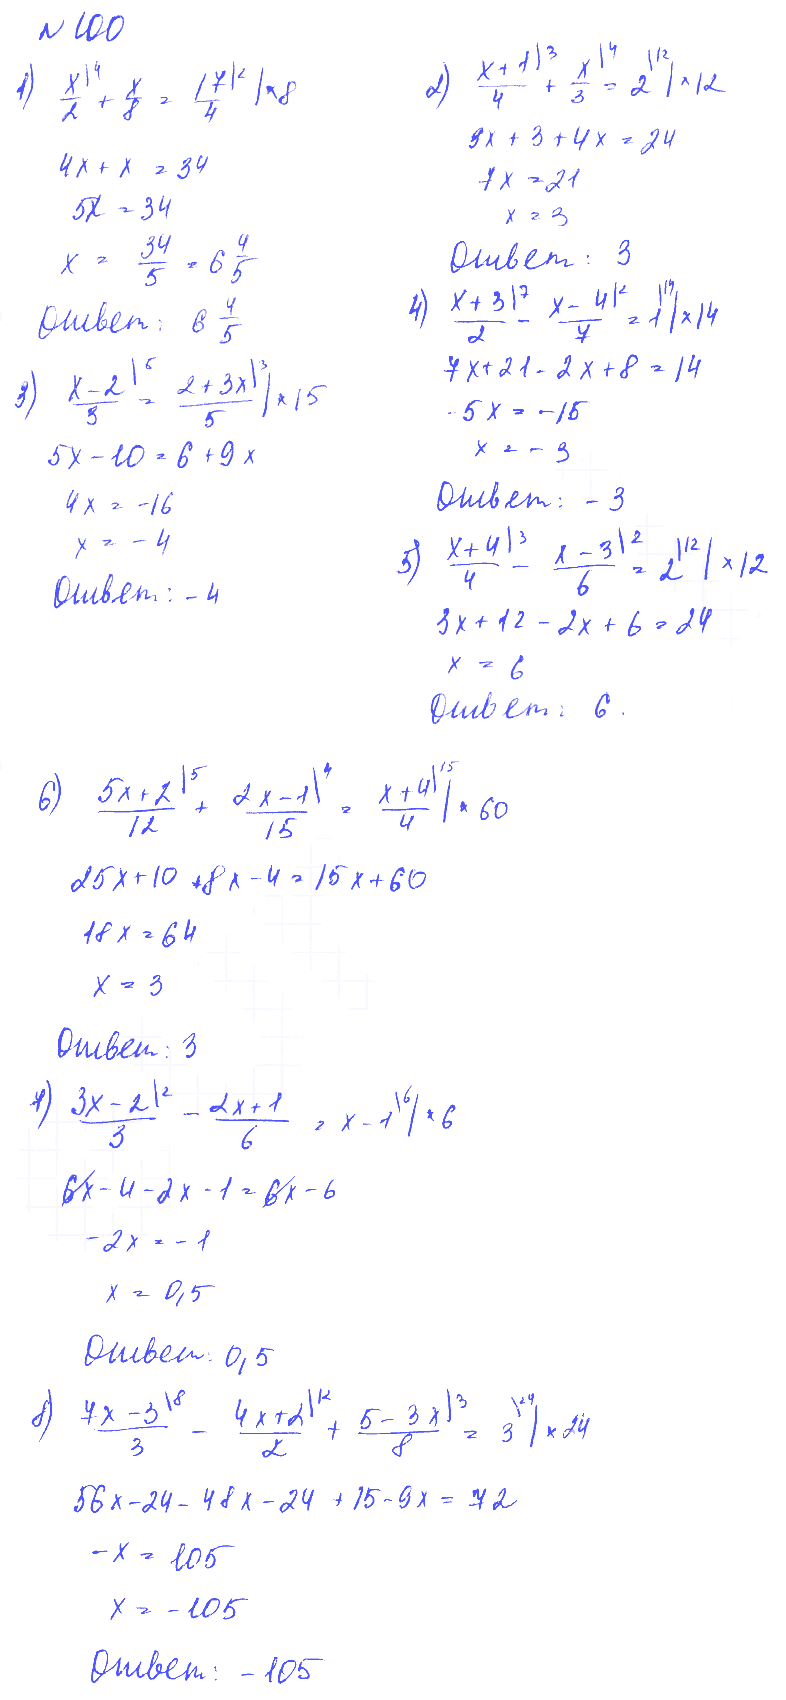 N 100
1) x/2 |4 + x/8 = 17/4 |2 | * 8
4x + x = 34
5x = 34
x = 34/5 = 6 4/5
Ответ: 6 4/5
2) x+1/4 |3 + x/3 |4 = 2 |12 | * 12
3x + 3 + 4x = 24
7x = 21
x = 3
Ответ: 3
3) x-2/3 |5 = 2+3x/5 |3 | * 15
5x - 10 = 6 + 9x
4x = -16
x = -4
Ответ: -4
4) x+3/2 |7 - x-4/7 |2 = 1 |14 | * 14
7x + 21 - 2x + 8 = 14
5x = -15
x = -3
Ответ: -3
5) x+4/4 |3 - x-3/6 |2 = 2 |12 | * 12
3x + 12 - 2x + 6 = 24
x = 6
Ответ: 6.
6) 5x+2/12 |5 + 2x-1/15 |4 = x+4/4 |15 | * 60
25x + 10 + 8x - 4 = 15x + 60
18x = 64
x = 3
Ответ: 3
7) 3x-2/3 |2 - 2x+1/6 = x - 1 |6 | * 6
6x - 4 - 2x - 1 = 6x - 6
-2x = -1
x = 0,5
Ответ: 0,5
8) 7x-3/3 |8 - 4x+2/2 |12 + 5-3x/8 |3 = 3 |24 | * 24
56x - 24 - 48x - 24 + 15 - 9x = 72
-x = 105
x = -105
Ответ: -105